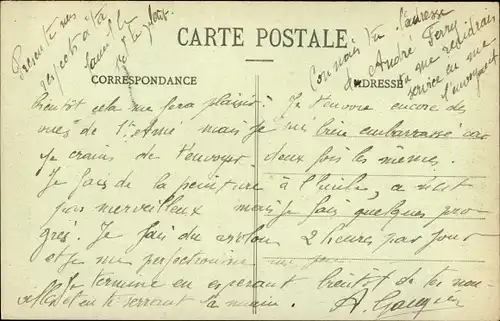 Présente mes
respects à ta
famille
Connais tu l'adresse
de André Ferry
tu me rendrais
service en me
l'envoyant
CARTE POSTALE
CORRESPONDANCE
ADRESSE
bientôt cela me fera plaisir. Je t'envoie encore des
vues de Ste Anne mais je suis bien embarrassé car
je crains de t'envoyer deux fois les mêmes.
Je fais de la peinture à l'huile, ce n'est
pas merveilleux mais je fais quelques pro
grès. Je fais du violon 2 heures par jour
et je me perfectionne un peu.
Je termine en espérant bientôt de tes nou-
velles et en te serrant la main.